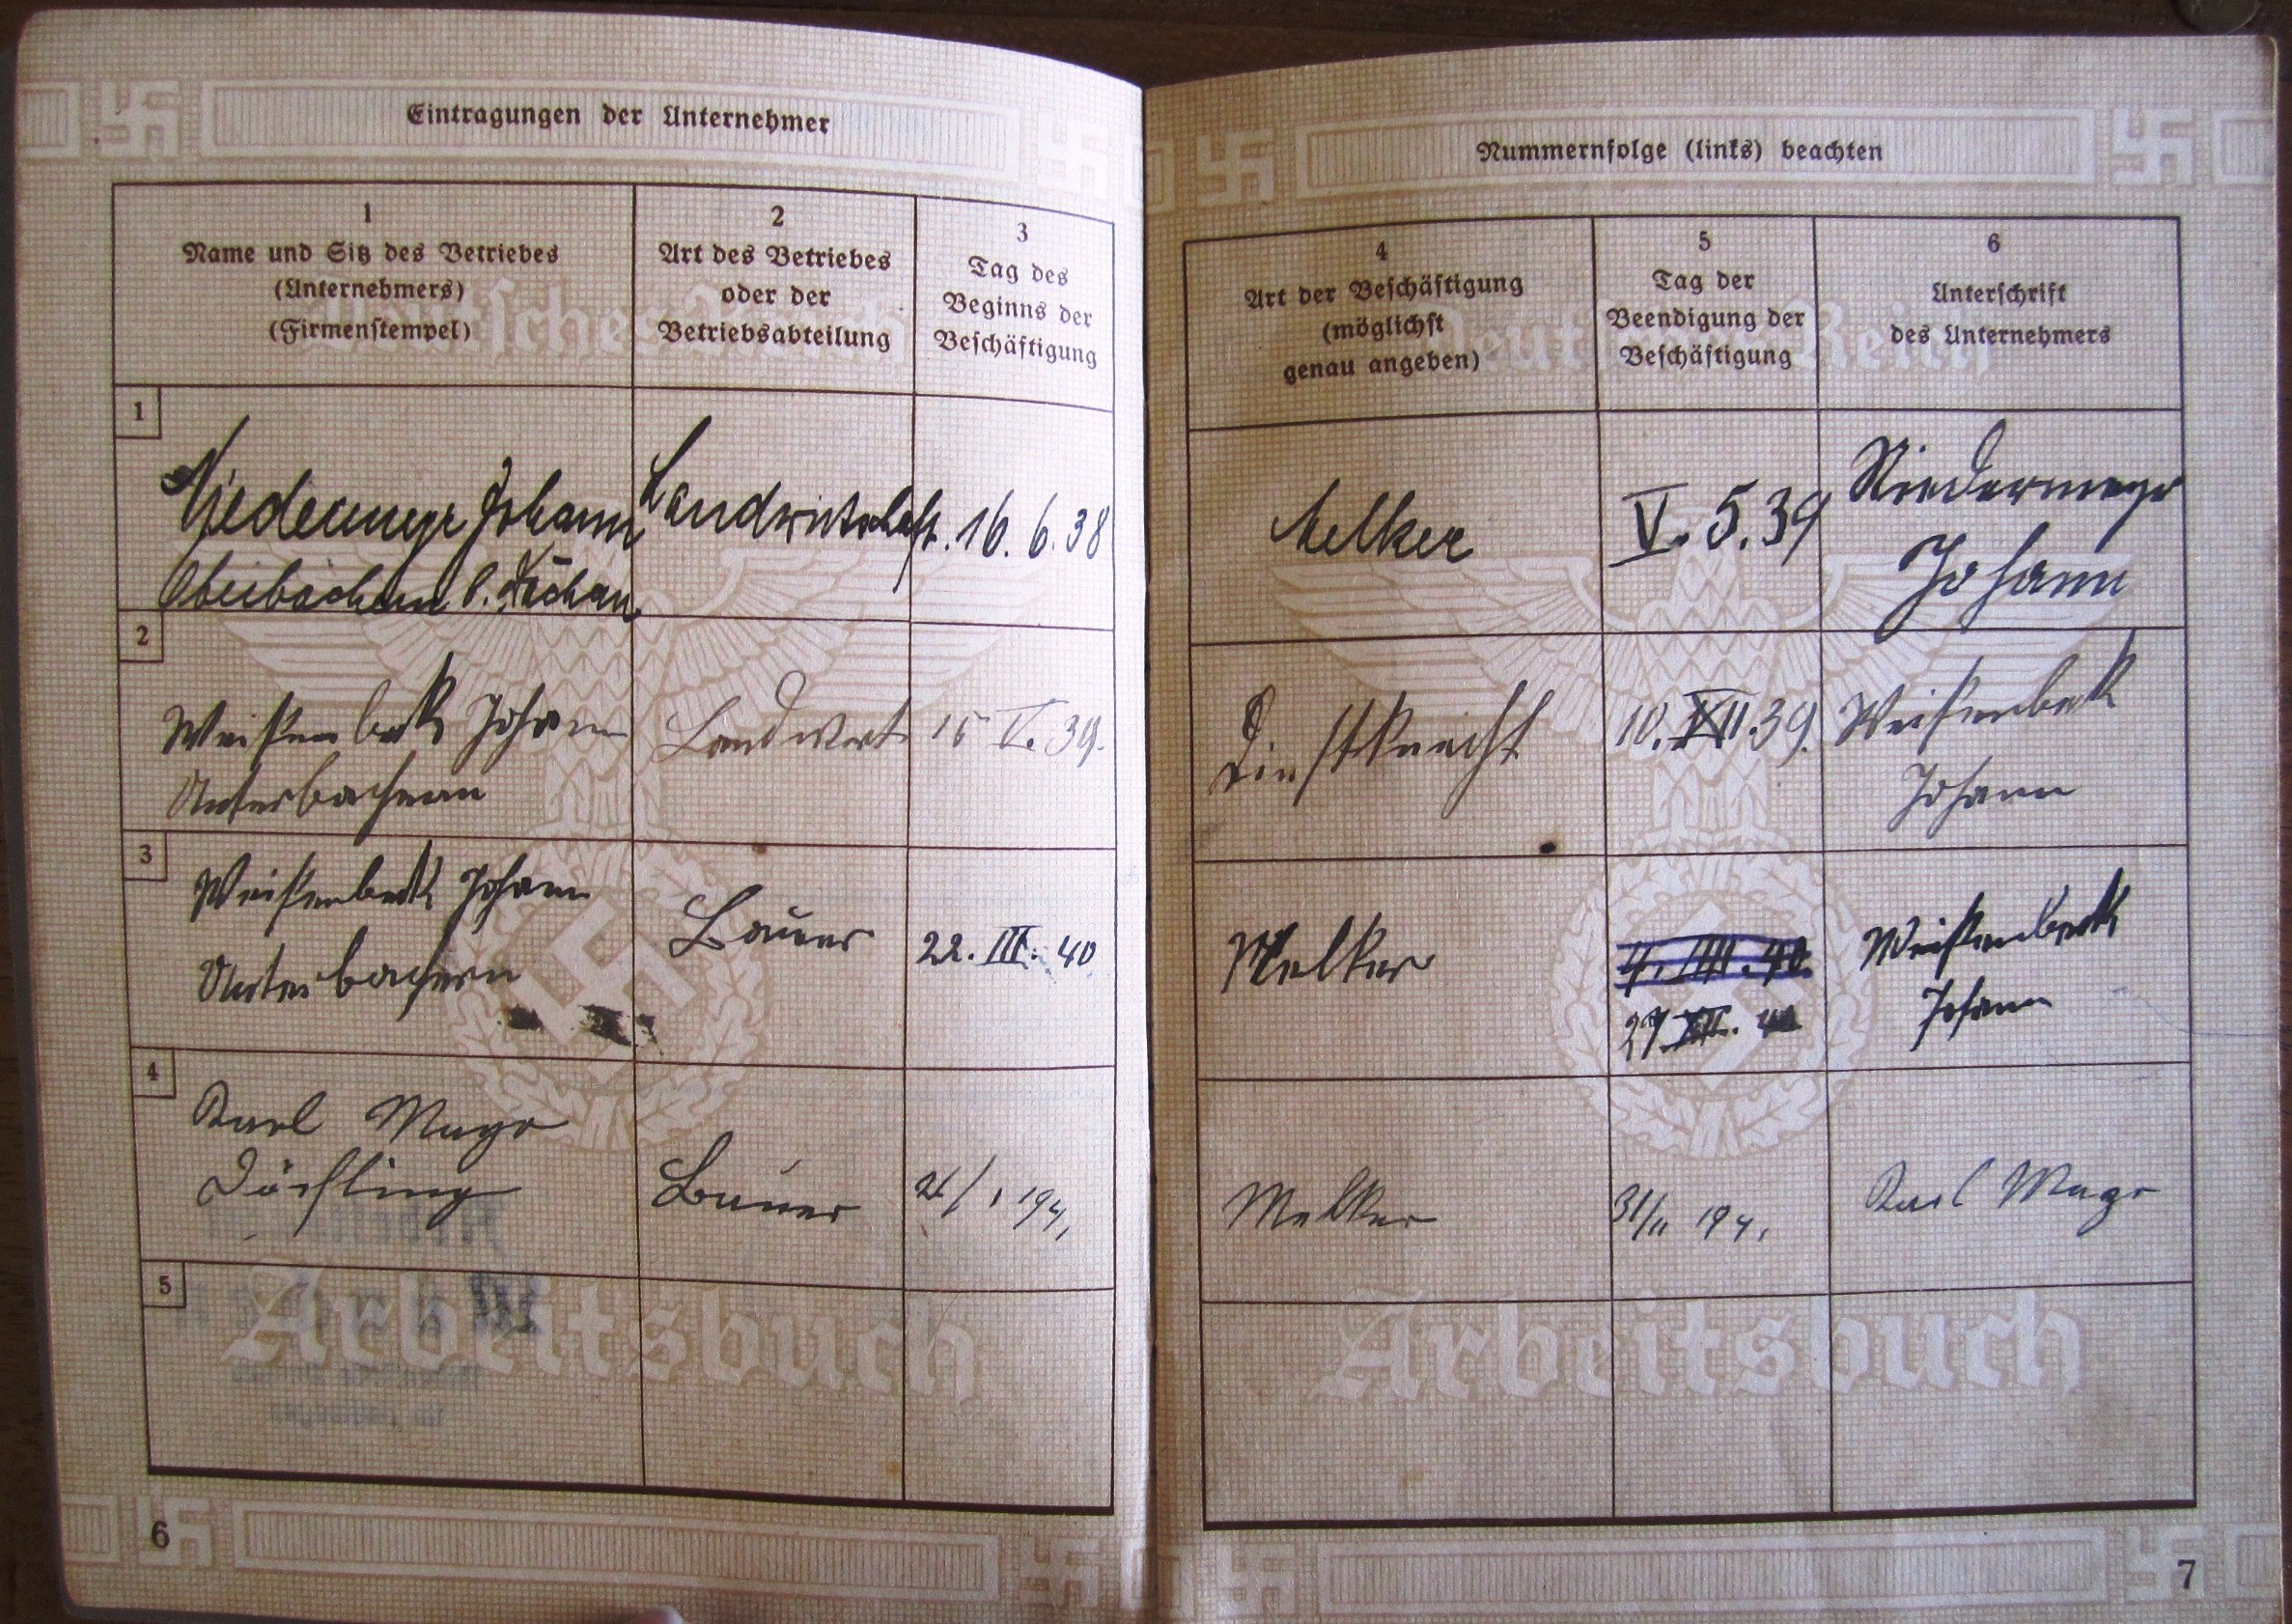 Eintragungen der Unternehmer
1
Name und Sitz des Betriebes
(Unternehmers)
(Firmenstempel)
2
Art des Betriebes
oder der
Betriebsabteilung
3
Tag des
Beginns der
Beschäftigung
1
Niedermeyr Johann
Oberbachern b. Dachau
Landwirtschaft
16. 6. 38
2
Weißenbek Johann
Unterbachern
Landwirt
15 V. 39.
3
Weißenbek Johann
Unterbachern
Bauer
22. III. 40
4
Karl Mayr
Bauer
5
Arbeitsbuch
6
Nummernfolge (links) beachten
4
Art der Beschäftigung
(möglichst
genau angeben)
5
Tag der
Beendigung der
Beschäftigung
6
Unterschrift
des Unternehmers
Melker
V. 5. 39
Niedermeyr
Johann
Dienstknecht
10. 39.
Weißenbek
Johann
Melker
27. XII.
Weißenbek
Johann
Melker
31/II 194
Karl Mayr
Deutsches Reich
Arbeitsbuch
7